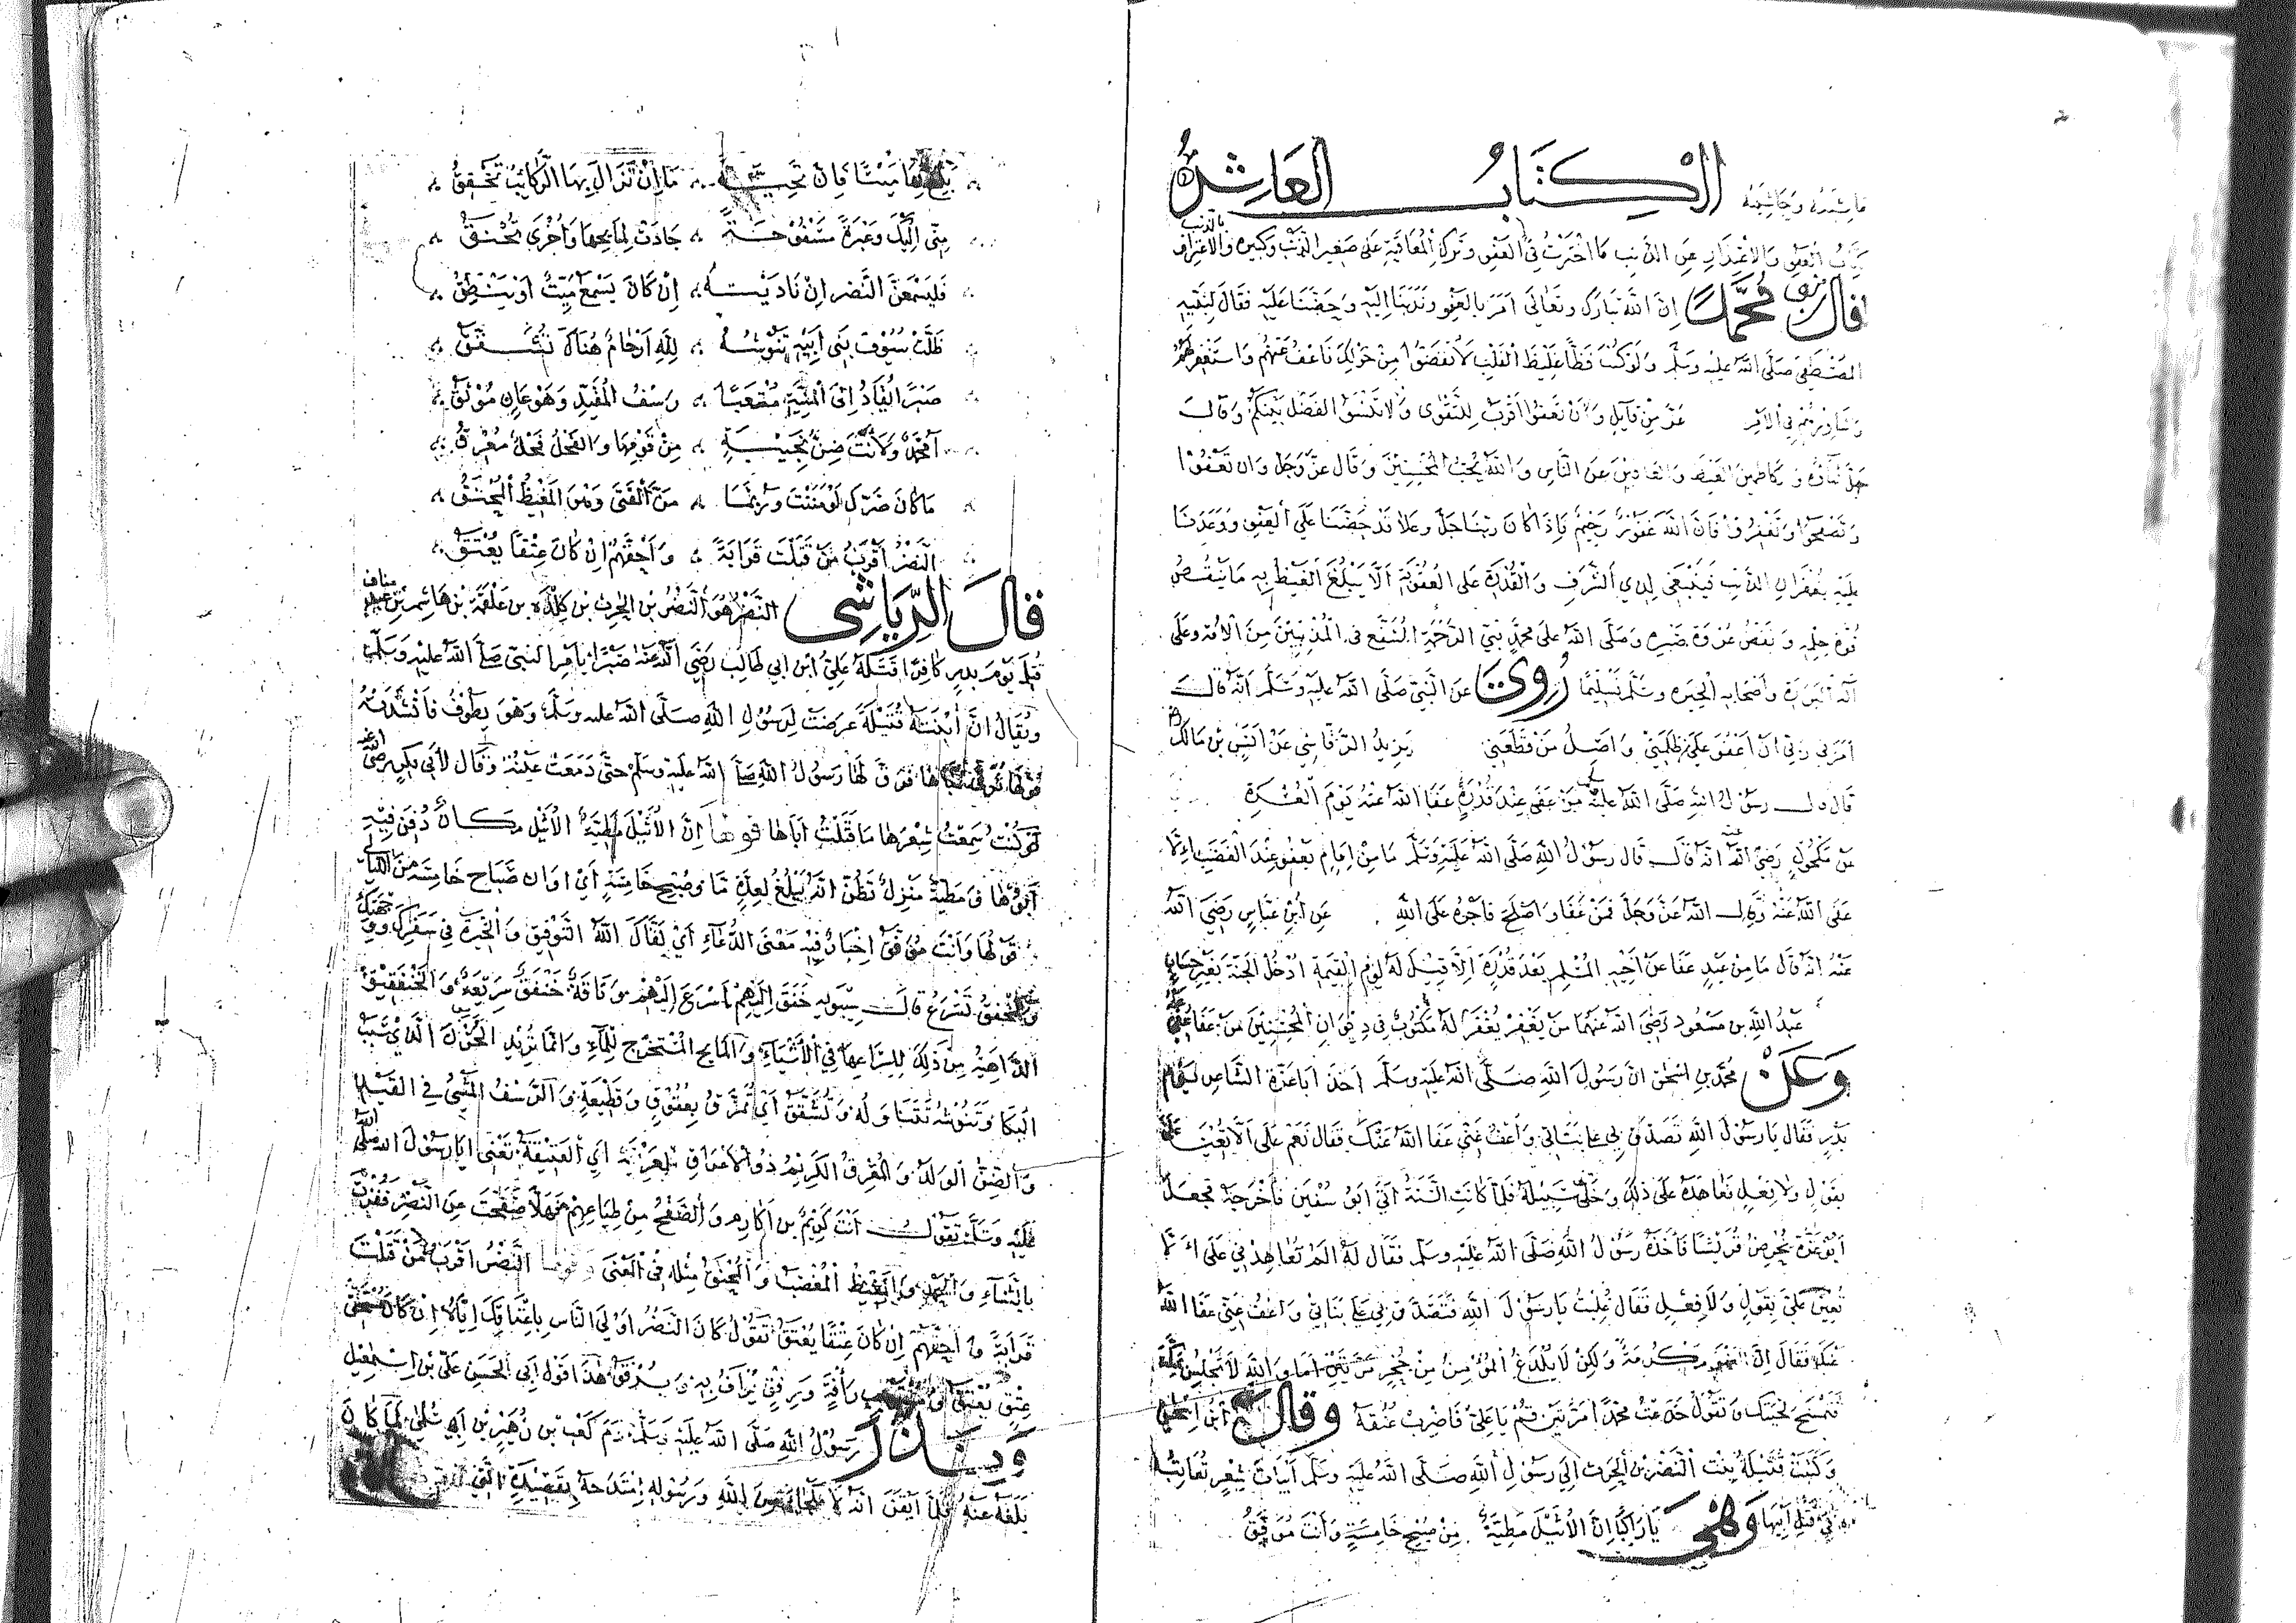 الكتاب العاشر
باب العفو والاعتذار عن الذنب ما اخترت في العفو وترك المعاقبة على صغير الذنب وكبيره والاعتراف بالذنب
قال محمد إن الله تبارك وتعالى أمر بالعفو وندبنا إليه وحضنا عليه فقال لنبيه
المصطفى صلى الله عليه وسلم ولو كنت فظا غليظ القلب لانفضوا من حولك فاعف عنهم واستغفر لهم
وشاورهم في الأمر عز من قائل وأن تعفوا أقرب للتقوى ولا تنسوا الفضل بينكم وقال
جل ثناؤه والكاظمين الغيظ والعافين عن الناس والله يحب المحسنين وقال عز وجل وان تعفوا
وتصفحوا وتغفروا فان الله غفور رحيم فإذا كان ربنا جل وعلا قد حضنا على العفو ووعدنا
عليه بغفران الذنب فينبغي لذي الشرف والقدرة على العقوبة ألا يبلغ الغيظ به ما ينقص
قوة حلمه وصلى الله على محمد نبي الرحمة المشفع في المذنبين من الأمة وعلى
آله البررة وأصحابه الخيره وسلم تسليما روي عن النبي صلى الله عليه وسلم أنه قال
أمرني ربي أن أعفو عن من ظلمني وأصل من قطعني يزيد الرقاشي عن أنس بن مالك
قال قال رسول الله صلى الله عليه من عفى عند قدرة عفا الله عنه يوم العسرة
عن مكحول رضي الله عنه انه قال قال رسول الله صلى الله عليه وسلم ما من إمام يعفو عند الغضب إلا
عفى الله عنه قال الله عز وجل فمن عفا واصلح فأجره على الله عن ابن عباس رضي الله
عنه انه قال ما من عبد عفا عن أخيه المسلم بعد قدرة إلا قيل له يوم القيمة ادخل الجنة بغير حساب
عبد الله بن مسعود رضي الله عنهما من يغفر يغفر له مكتوب في ديوان المحسنين من عفا
وعن محمد بن اسحق ان رسول الله صلى الله عليه وسلم أخذ أبا عزة الشاعر يوم
بدر فقال يا رسول الله تصدق بي على بناتي واعف عني عفا الله عنك فقال نعم على ألا تعين علي
بقول ولا بفعل فعاهده على ذلك وخلى سبيله فلما كانت السنة أتى أبو سفين فأخرجه فجعل
أبو عزة يحرض قريشا فأخذه رسول الله صلى الله عليه وسلم فقال له ألم تعاهدني على ألا
تعين علي بقول ولا فعل فقال غلبت يا رسول الله فتصدق بي على بناتي واعف عني عفا الله
عنك فقال ولكن لا يلدغ المؤمن من جحر مرتين أما والله لا تجلس بمكة
فتمسح لحيتك وتقول خدعت محمدا مرتين قم يا علي فاضرب عنقه وقال ابن إسحق
وكتبت قتيلة بنت النضر بن الحرث إلى رسول الله صلى الله عليه وسلم أبيات شعر تعاتبه
في قتل أبيها وهي يا راكبا إن الأثيل مطية من صبح خامسة وأنت موفق
بلغ بها ميتا فان تحية ما إن تزال بها الركائب تخفق
مني إليك وعبرة مسفوحة جادت لمايحها وأخرى تخنق
فليسمعن النضر إن ناديته إن كان يسمع ميت أو ينطق
ظلت سيوف بني أبيه تنوشه لله أرحام هناك تشقق
صبرا يقاد إلى المنية متعبا رسف المقيد وهو عان موثق
أمحمد ولأنت ضن نجيبة من قومها والفحل فحل معرق
ما كان ضرك لو مننت وربما من الفتى وهو المغيظ المحنق
النضر أقرب من قتلت قرابة وأحقهم إن كان عتقا يعتق
قال الرياشي النضر هو النضر بن الحرث بن كلدة بن علقمة بن هاشم بن عبد مناف
قتل يوم بدر كافرا قتله علي ابن ابي طالب رضي الله عنه صبرا بأمر النبي صلى الله عليه وسلم
ويقال ان ابنته قتيلة عرضت لرسول الله صلى الله عليه وسلم وهو يطوف فأنشدته
فرق لها رسول الله صلى الله عليه وسلم حتى دمعت عينه وقال لأبي بكر رضي الله عنه
لو كنت سمعت شعرها ما قتلت أباها قولها إن الأثيل مطية الأثيل مكان دفن فيه
أبوها ومطية منزل تظن انه يبلغ لعدة ما وصبح خامسة أي اوان صباح خامسة من الليالي
قولها وأنت موفق اخبار فيه معنى الدعاء أي لقاك الله التوفيق والخيرة في سفرك
وتخفق تسرع قال سيبويه خفق إليهم أسرع إليهم وناقة خنفق سريعة والخنفقيق
الداهية من ذلك لإسراعها في الأشياء والمايح المستخرج للماء وانما تريد الحزن الذي سبب
البكا وتنوشه تتناوله وتشقق أي تمزق بعقوق وقطيعة والرسف المشي في القيد
والضن الولد والمعرق الكريم ذو الأعراق أي العتيقة تعني يا رسول الله صلى الله
عليه وسلم تقول أنت كريم بن أكارم والصفح من طباعهم فهلا صفحت عن النضر
والمغيظ المغضب والمحنق مثله في المعنى وقولها النضر أقرب من قتلت
قرابة وأحقهم إن كان عتقا يعتق تقول كان النضر أولى الناس باعتاقك إياه إن كان
عتق يعتق هذا قول أبي الحسن علي بن إسمعيل
ونذر رسول الله صلى الله عليه وسلم دم كعب بن زهير بن أبي سلمى لما كان
بلغه عنه فلما أيقن أنه لا ملجأ من الله ورسوله امتدحه بقصيدة التي